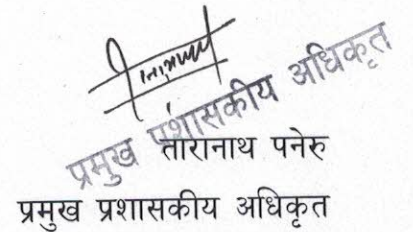 प्रमुख प्रशासकीय अधिकृत
तारानाथ पनेरु
प्रमुख प्रशासकीय अधिकृत